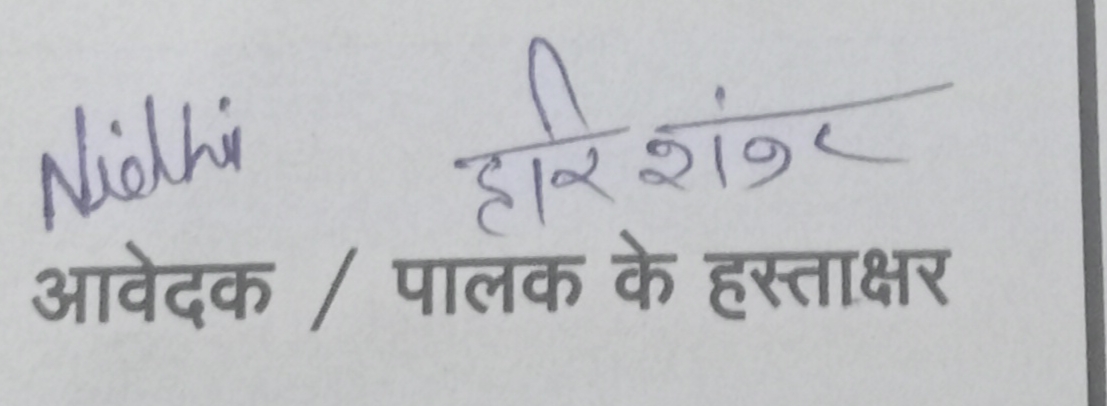 Nidhi हरि शंकर
आवेदक / पालक के हस्ताक्षर